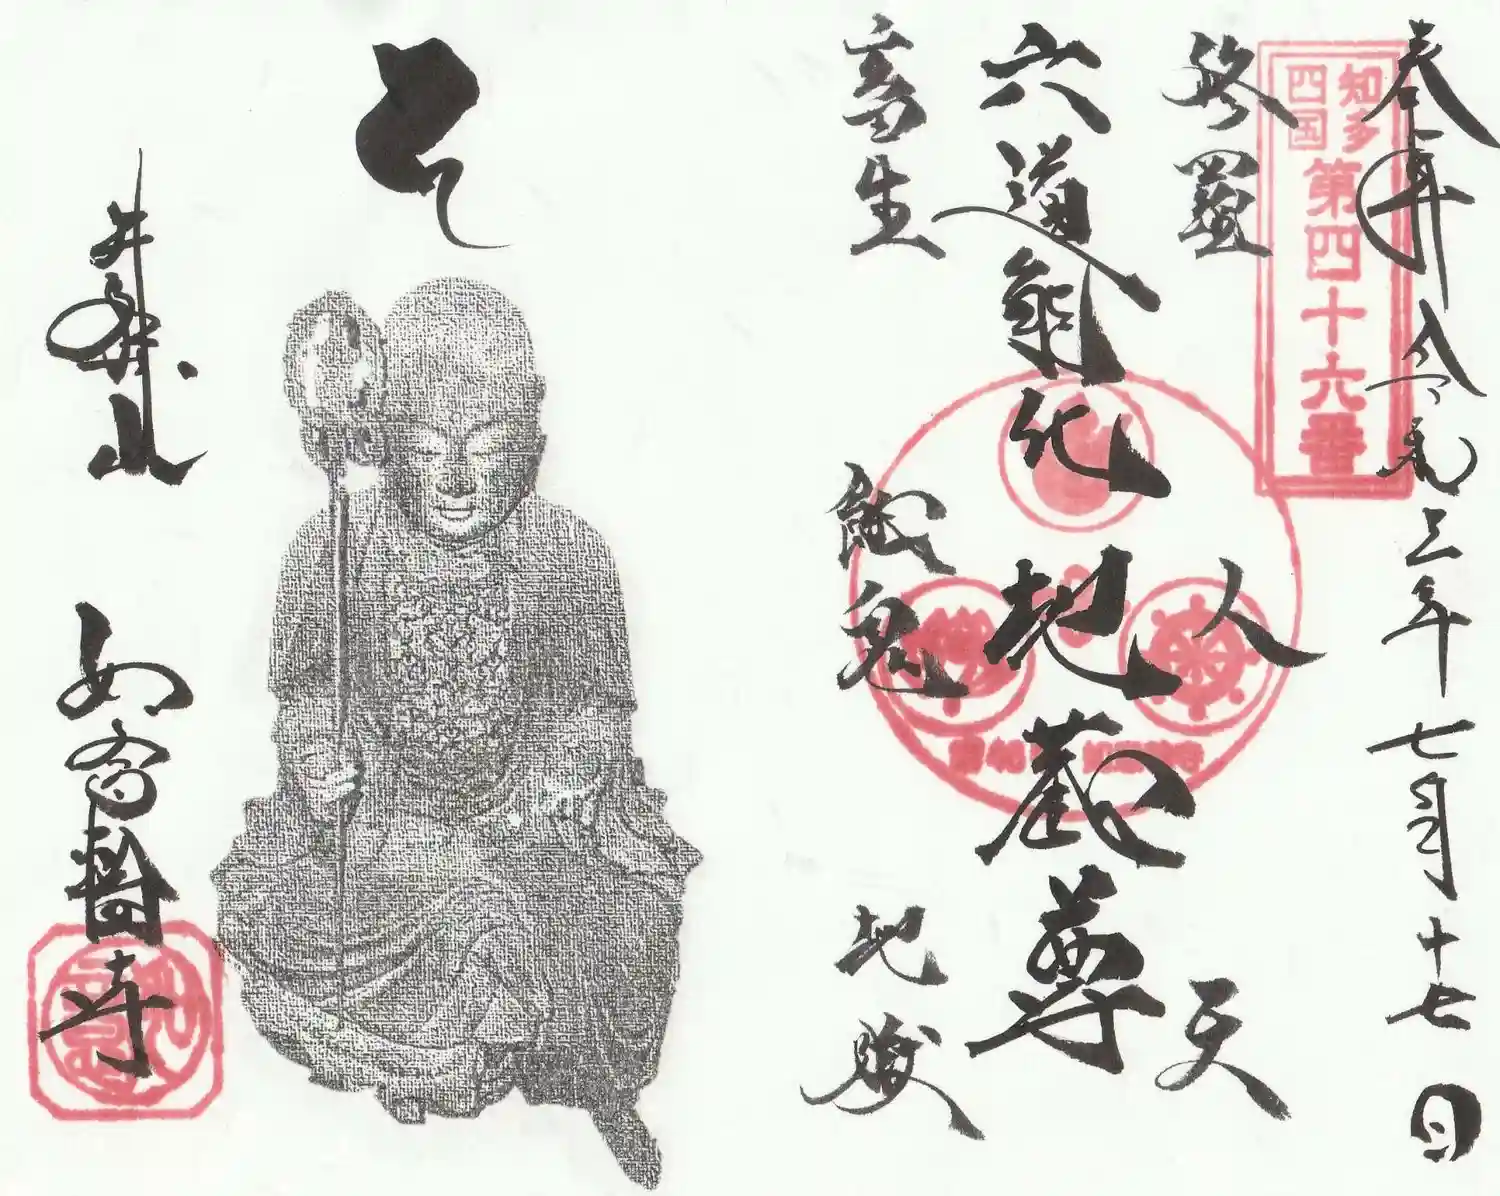 奉拝 令和三年七月十七日
知多
四国
第四十六番
修羅
人
天
六道能化地蔵尊
畜生
餓鬼
地獄
井際山
如意輪寺